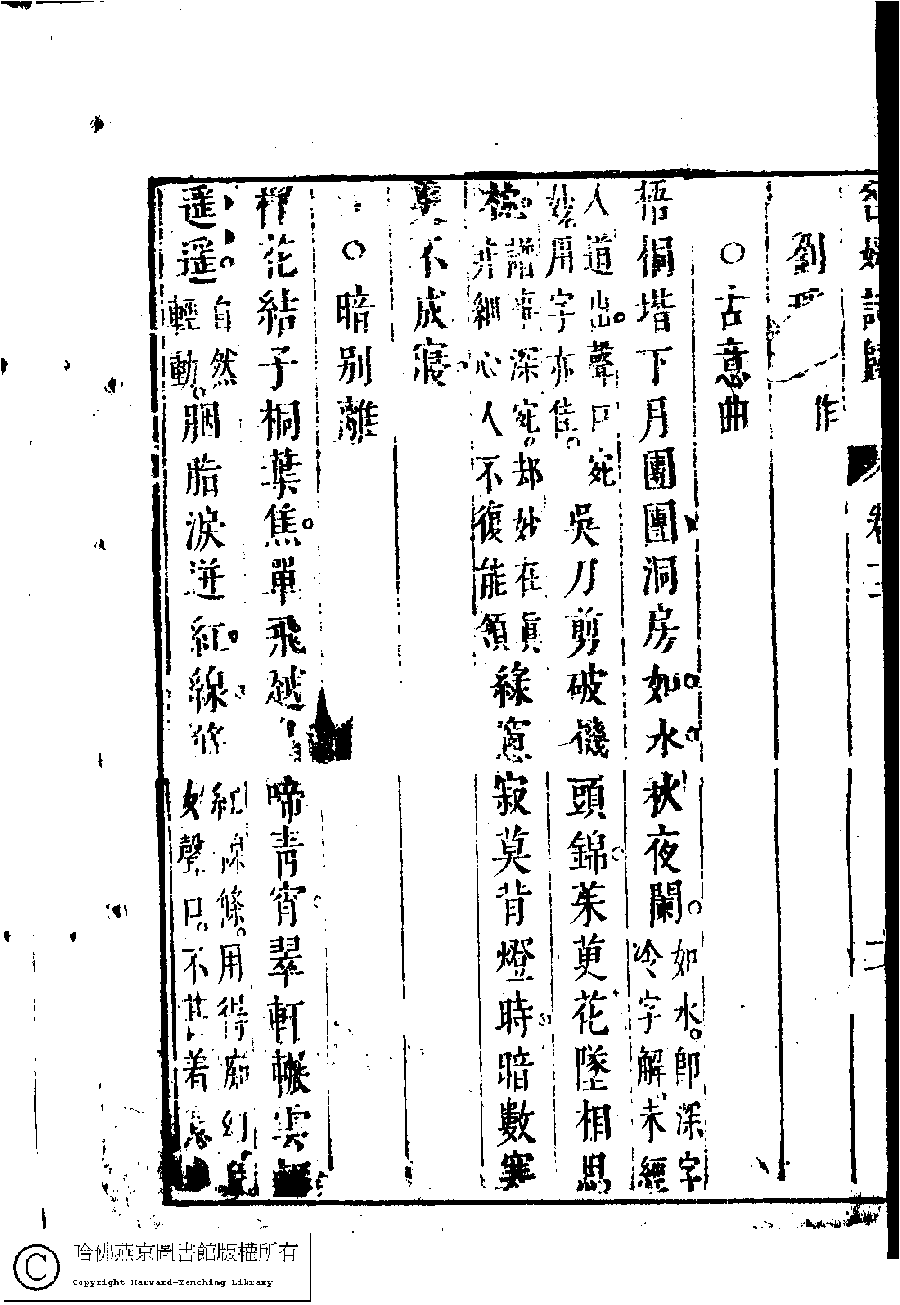 劉 作
○古意曲
梧桐堦下月團團洞房如水秋夜闌如水即深字冷字解未經
人道出聲口宛妙用字亦佳吳刀剪破機頭錦茱萸花墜相思
枕諳事深宛却妙在眞非細心人不復能領綠窻寂莫背燈時暗數寒
更不成寢
○暗別離
花結子桐葉焦單飛越啼青宵翠軒輾雲
遥遥自然輕動胭脂淚迸紅線條紅線條用得癡幻聲口不甚着意
哈佛燕京圖書館版權所有
Copyright Harvard-Yenching Library